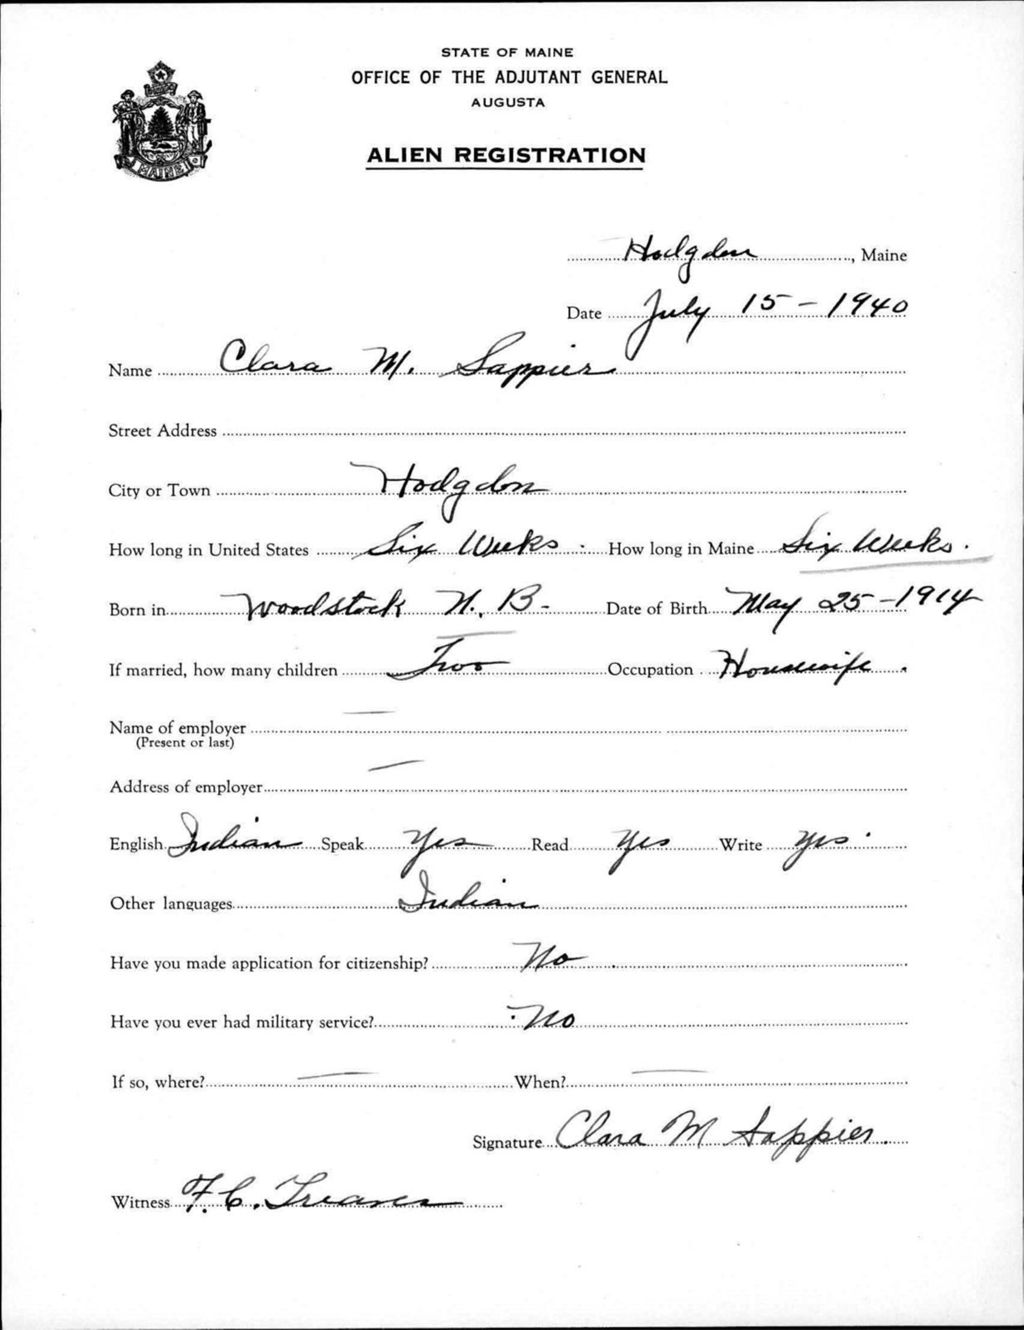 STATE OF MAINE
OFFICE OF THE ADJUTANT GENERAL
AUGUSTA
ALIEN REGISTRATION
MAINE
Hodgdon, Maine
Date July 15 - 1940
Name Clara M. Sappier
Street Address
City or Town Hodgdon
How long in United States Six Weeks. How long in Maine Six Weeks.
Born in Woodstock N. B- Date of Birth May 25-1914
If married, how many children Two Occupation Housewife.
Name of employer —
(Present or last)
Address of employer —
English Indian Speak Yes Read Yes Write Yes.
Other languages Indian
Have you made application for citizenship? No.
Have you ever had military service? No
If so, where? — When? —
Signature Clara M Sappier.
Witness F. C.